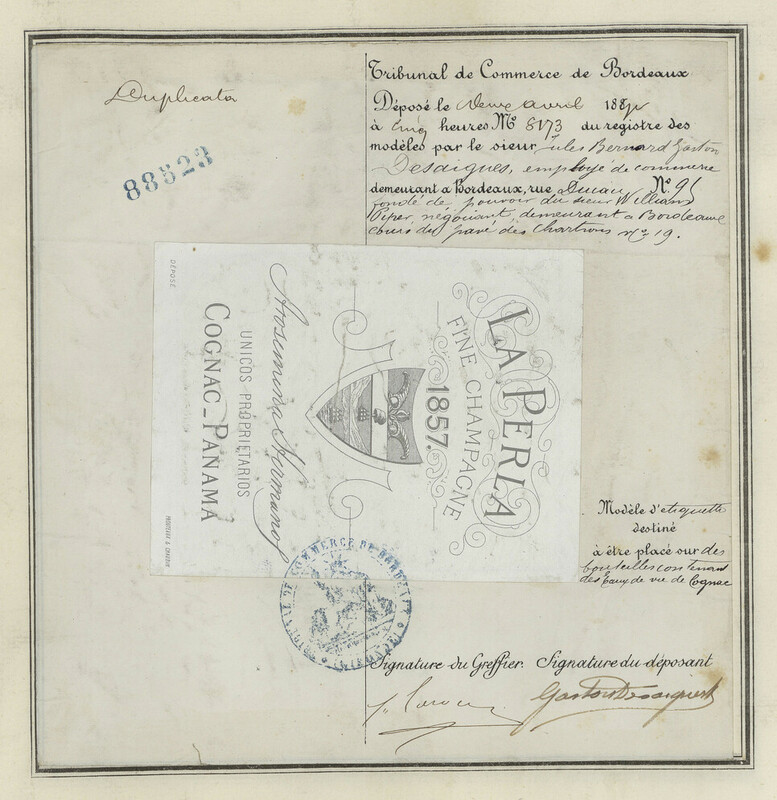 Duplicata
88523
Tribunal de Commerce de Bordeaux
Déposé le deux avril 188
à cinq heures Nº 8173 du registre des
modèles par le sieur Jules Bernard Gaston
Desaigues, employé de commerce
demeurant a Bordeaux, rue Ducau Nº 91
fondé de pouvoir du sieur William
Piper, négociant, demeurant a Bordeaux
cours du pavé des Chartrons nº 19.
LA PERLA
FINE CHAMPAGNE
1857.
Arosemena Hermanos
UNICOS PROPRIETARIOS
COGNAC_PANAMA
DÉPOSÉ
Modèle d'étiquette
destiné
à être placé sur des
bouteilles contenant
des Eaux de vie de Cognac
TRIBUNAL DE COMMERCE DE BORDEAUX
(GIRONDE)
Signature du Greffier. Signature du déposant
Gaston Desaigues